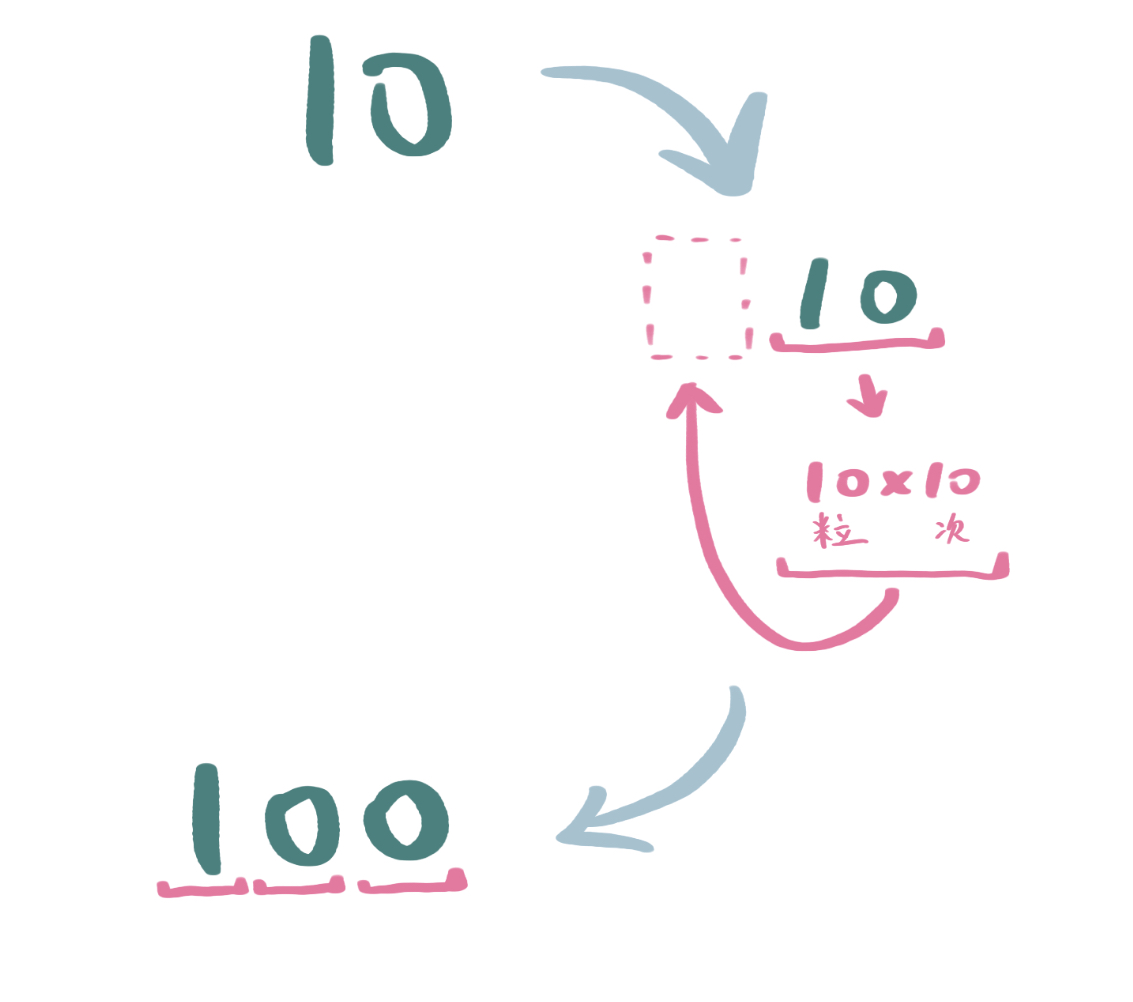 10
10
10×10
粒 次
100